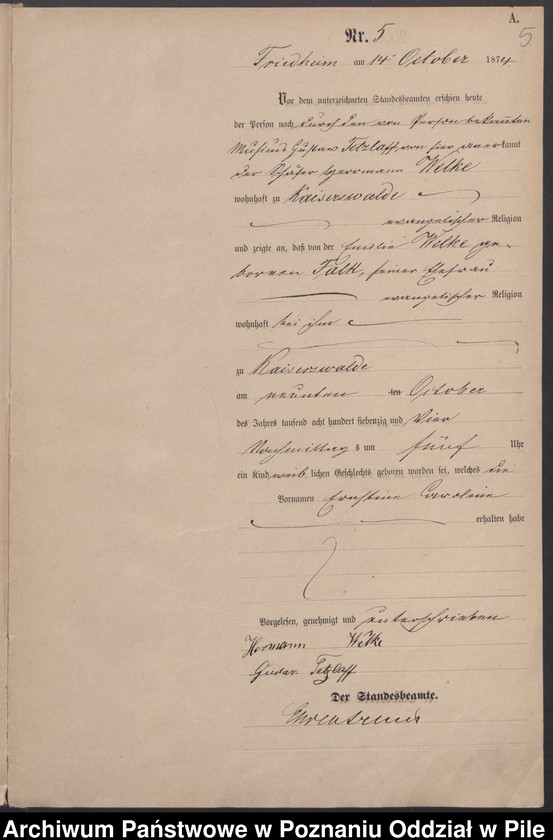 A.
5
Nr. 5
Friedheim am 14t October 1874
Vor dem unterzeichneten Standesbeamten erschien heute
der Person nach durch den von Person bekannten
Musicus Gustav Tetzlaff von hier anerkannt
der Schäfer Herrmann Welke
wohnhaft zu Kaiserswalde
evangelischer Religion
und zeigte an, daß von der Emilie Welke ge-
bornen Falk, seiner Ehefrau
evangelischer Religion
wohnhaft bei ihm
zu Kaiserswalde
am neunten ten October
des Jahres tausend acht hundert siebenzig und Vier
Nachmittag s um fünf Uhr
ein Kind weib lichen Geschlechts geboren worden sei, welches die
Vornamen Ernstine Caroline
erhalten habe
Vorgelesen, genehmigt und unterschrieben
Hermann Welke
Gustav Tetzlaff
Der Standesbeamte.
Archiwum Państwowe w Poznaniu Oddział w Pile